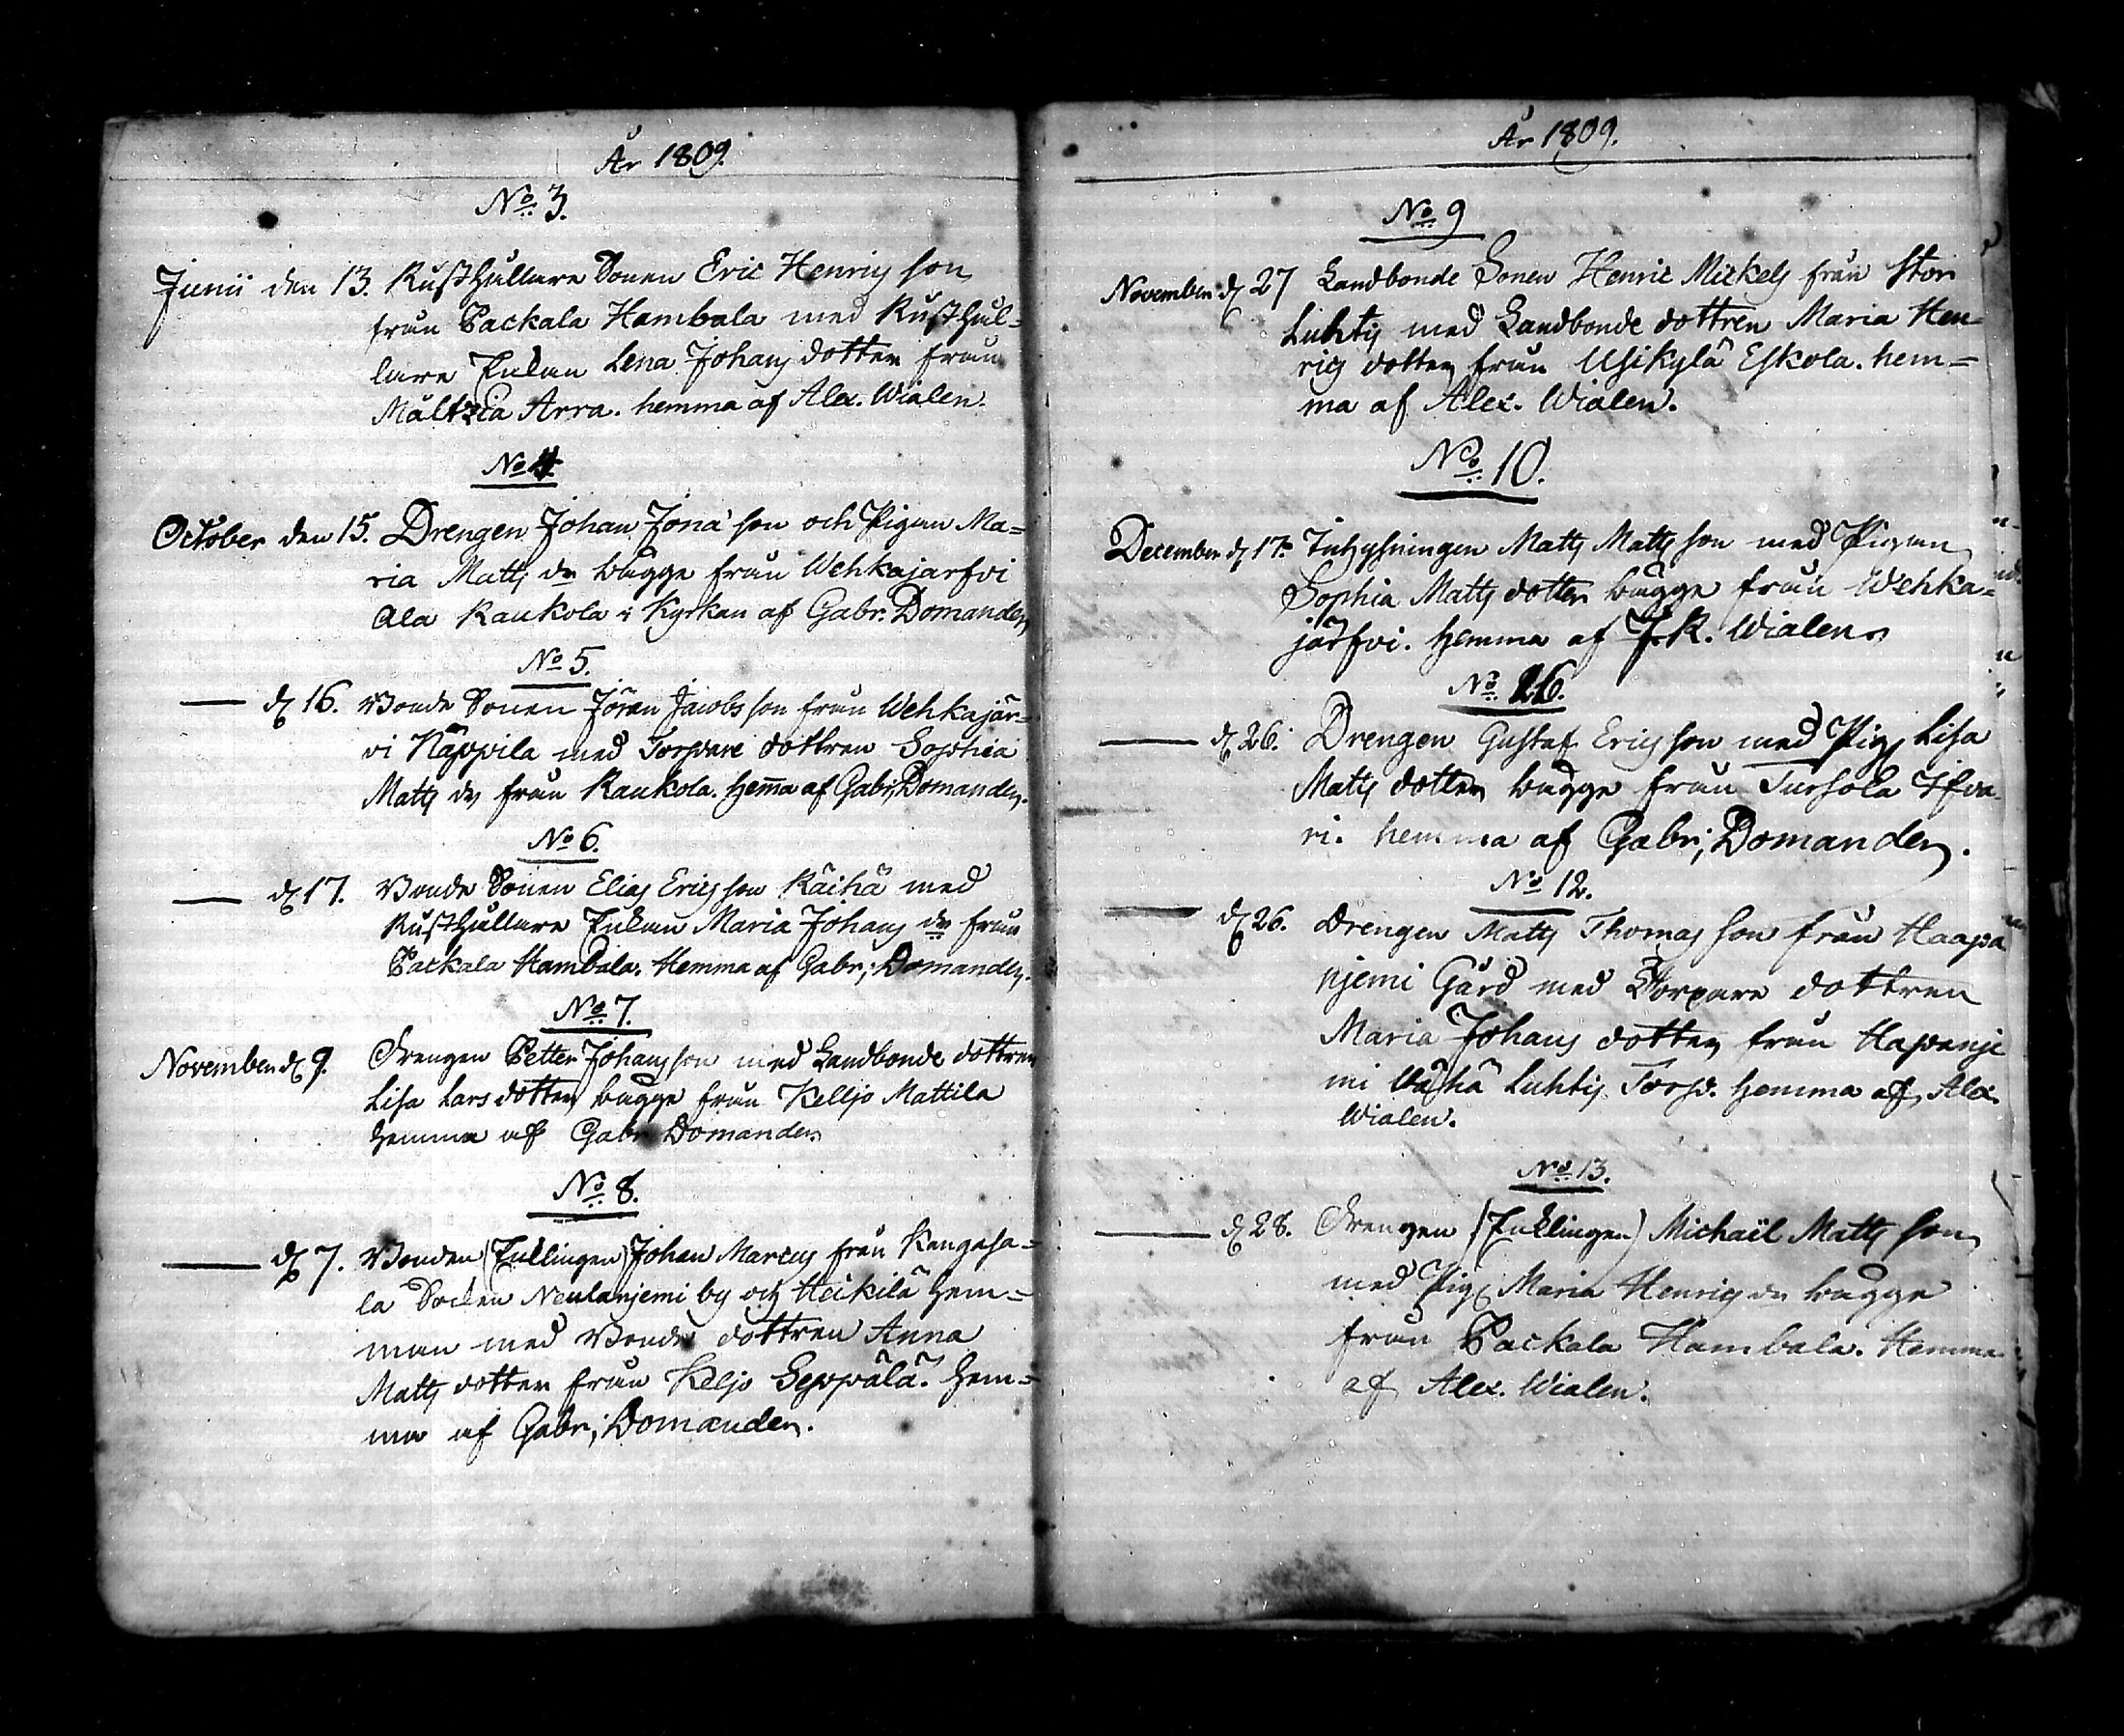 År 1809.
No 3.
Junii den 13. Rusthållare Sonen Eric Henrics son
från Packala Hambala med Rusthål-
lare Enkan Lena Johans dotter från
Arra. hemma af Alex. Wialen.
No 4
October den 15. Drengen Johan Jona son och Pigan Ma-
ria Matts dr bägge från Wehkajarfvi
Ala Raukola i Kyrkan af Gabr. Domander
No 5.
d. 16. Bonde Sonen Jöran Jacobs son från Wehkajär-
vi Näppila med Torpare dottren Sophia
Matts dr från Raukola. hemma af Gabr; Domander.
No 6.
d. 17. Bonde Sonen Elias Erics son Räihä med
Rusthållare Enkan Maria Johans dr från
Packala Hambala. Hemma af Gabr; Domander.
No 7.
November d. 9. Drengen Petter Johans son med Landbonde dottren
Lisa Lars dotter bägge från Kelljo Mattila
hemma af Gabr Domander
No 8.
d. 7. Bonden (Enklingen) Johan Marcus från Kangasa-
la Socken Neulanjemi by och Heikilä hem-
man med Bonde dottren Anna
Matts dotter från Keljo Seppälä. hem-
ma af Gabr; Domander.
År 1809.
No 9
November d. 27 Landbonde Sonen Henric Mickels från Stor
Luhtis med Landbonde dottren Maria Hen-
rics dotter från Usikylä Eskola. hem-
ma af Alex. Wialen.
No 10.
December d. 17. Inhysningen Matts Matts son med Pigan
Sophia Matts dotter bägge från Wehka-
järfvi. hemma af F. R. Wialen
No
d. 26. Drengen Gustaf Erics son med Pig. Lisa
Matts dotter bägge från Sursola Ifva-
ri. hemma af Gabr; Domander.
No 12.
d. 26. Drengen Matts Thomas son från Haapa
njemi Gård med Torpare dottren
Maria Johans dotter från Hapanje
mi Vähä Luhtis Torp. hemma af Alex.
Wialen.
No 13.
d. 28. Drengen (Enklingen) Michaël Matts son
med Pig. Maria Henrics dr bägge
från Packala Hambala. Hemma
af Alex. Wialen.